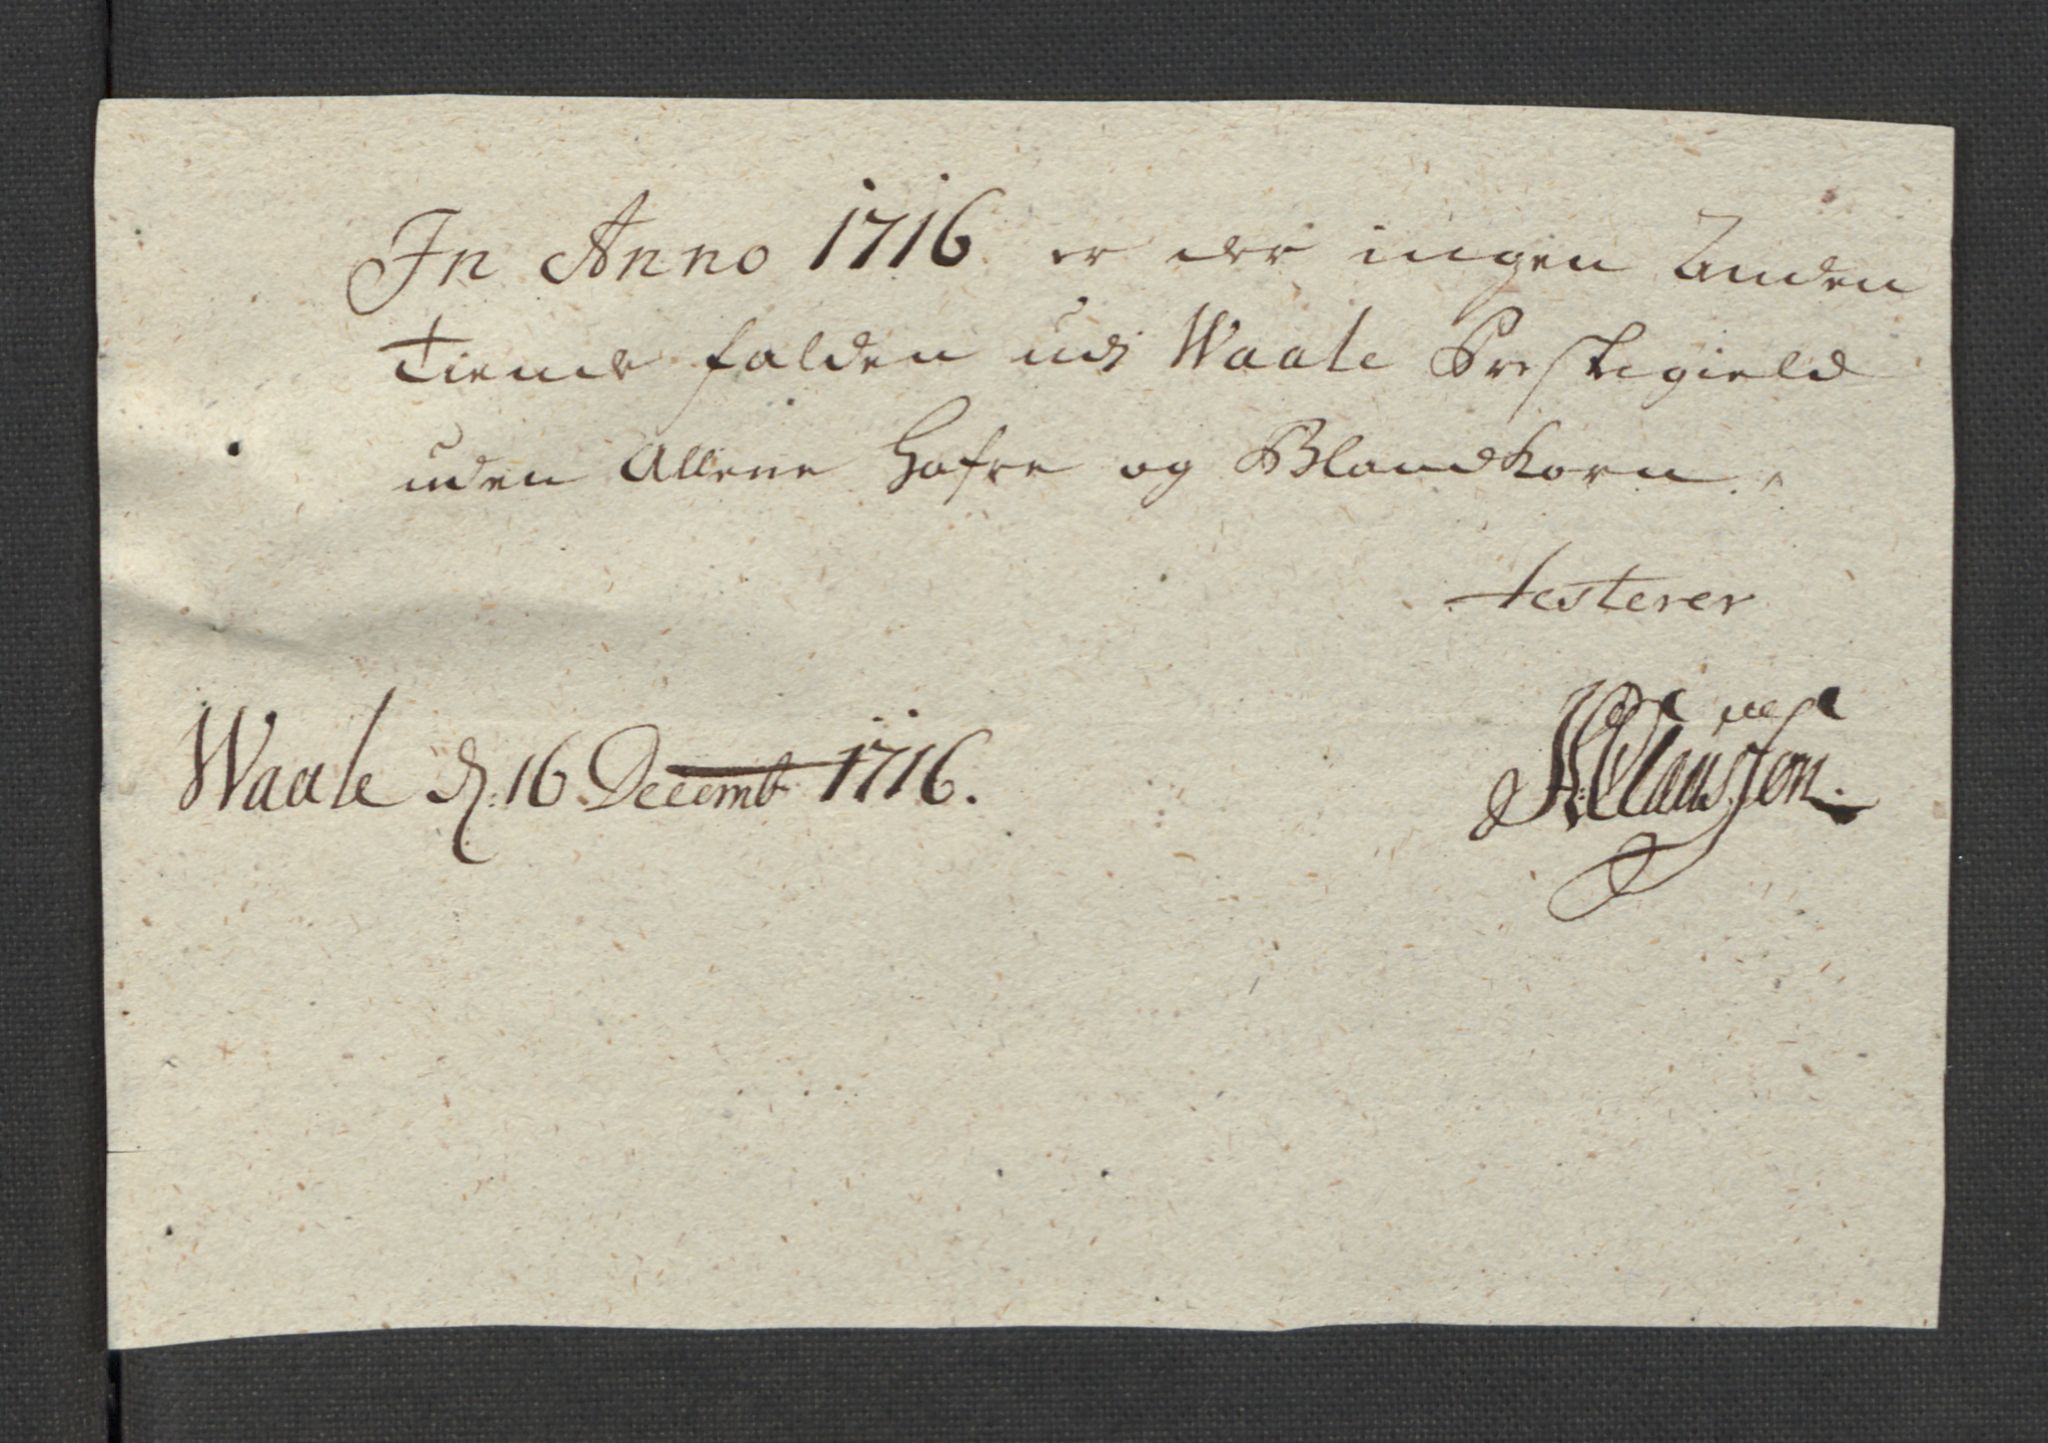 In Anno 1716 er der ingen anden
Tiende falden udj Waale Prestegield
uden Allene Hafre og Blandkorn.
testerer
Waale d: 16 Decemb 1716.
Claussøn